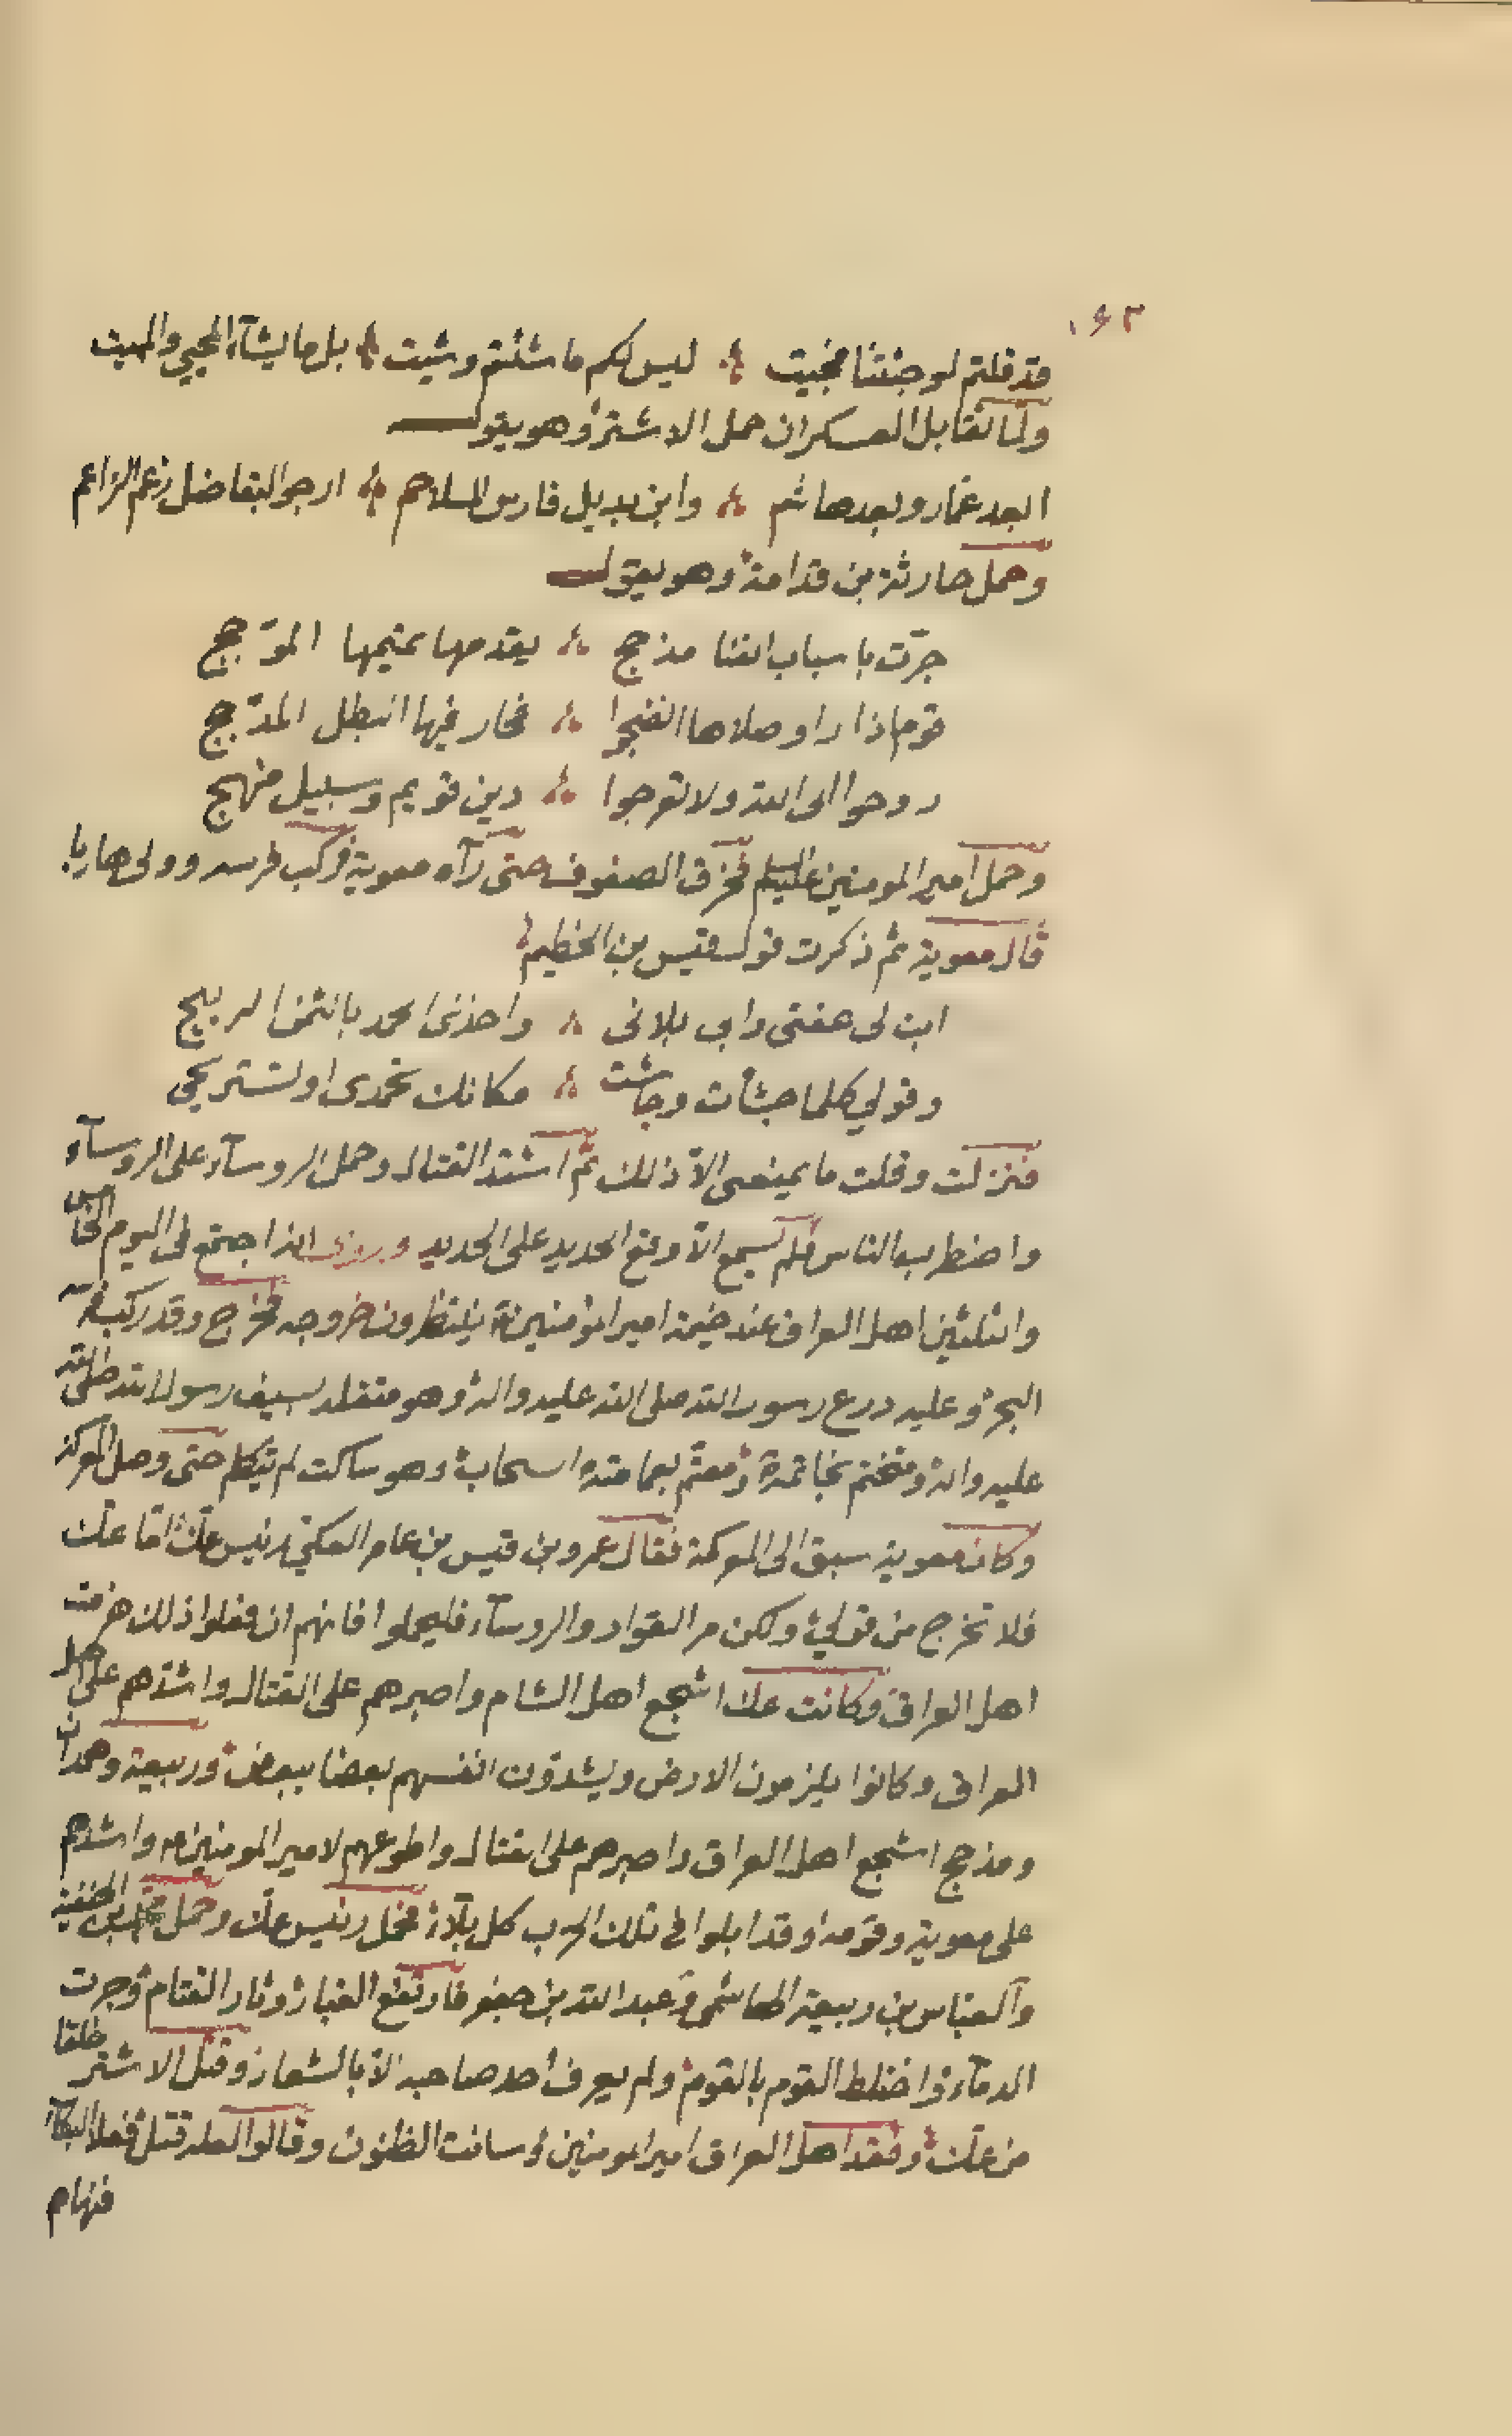 ١٤٢
قد قلتم لو جئتنا فجيت ليس لكم ما شئتم وشيت بل ما يشآء المحيي والمميت
ولما تقابل العسكران حمل الاشتر وهو يقول
ابعد عمار وبعد هاشم وابن بديل فارس الملاحم ارجو البقا ضل زعم الزاعم
وحمل حارثة بن قدامة وهو يقول
جرّت باسباب الفنا مذحج يقدمها بمتيمها المتوّج
قوم اذا راو صلاها انفجوا تحار فيها البطل المدجّج
روحوا الى الله ولا تعرجوا دين قويم وسبيل منهج
وحمل امير المومنين عليه السلم فخرق الصفوف حتى رآه معوية فركب فرسه وولى هاربا
قال معوية ثم ذكرت قول قيس بن الخطيم
ابت لى عفتى وابى بلائى واخذى الحمد بالثمن الربيح
وقولي كلما جشأت وجاشت مكانك تحمدى او تستريحى
فنزلت وقلت ما يمنعنى الا ذلك ثم اشتد القتال وحمل الروسآء على الروسآء
واضطرب الناس فلم تسمع الا وقع الحديد على الحديد وروى انه اجتمع فى اليوم الخامس
والثلثين اهل العراق عند خيمة امير المؤمنين ينتظرون خروجه فخرج وقد ركب فرسه
البحر وعليه درع رسول الله صلى الله عليه واله وهو متقلد بسيف رسول الله صلى الله
عليه واله ومتختم بخاتمه ومعتم بعمامته السحاب وهو ساكت لم يتكلم حتى وصل المركز
وكان معوية سبق الى المعركة فقال عمرو بن قيس بن عامر العكي رئيس عك اما عك
فلا تخرج من قولي ولكن مر القواد والروسآء فليحملوا فانهم ان فعلوا ذلك هزمت
اهل العراق وكانت عك اشجع اهل الشام واصبرهم على القتال واشدهم على اهل
العراق وكانوا يلزمون الارض ويشدون انفسهم بعضا ببعض وربيعة وهمدان
ومذحج اشجع اهل العراق واصبرهم على القتال واطوعهم لامير المومنين واشدهم
على معوية وقومه وقد ابلوا فى تلك الحرب كل بلآء فحمل رئيس عك وحمل محمد بن الحنفية
والعباس بن ربيعة الهاشمى وعبد الله بن جعفر فارتفع الغبار وثار القتام وجرت
الدمآء واختلط القوم بالقوم ولم يعرف احد صاحبه الا بالشعار وقتل الاشتر خلقا
من عك وفقد اهل العراق امير المومنين وسائت الظنون وقالوا لعله قتل فعلا البكآء
فنهاهم